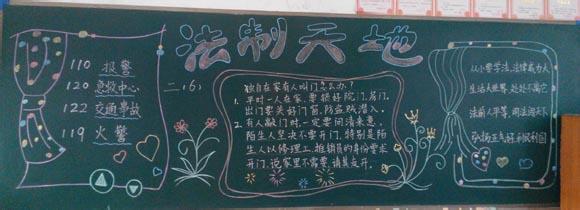 法制天地
110 报警
120 急救中心
122 交通事故
119 火警
二.(6)
独自在家有人叫门怎么办?
1. 平时一人在家,要锁好院门、房门.
出门要关好门窗,防盗贼潜入.
2. 有人敲门时一定要问清来意.
陌生人坚决不要开门,特别是陌
生人以修理工、推销员的身份要求
开门,说家里不需要,请其走开.
从小要学法,法律威力大
生活大世界,处处不离它
法前人平等,
弘扬正气好,利国